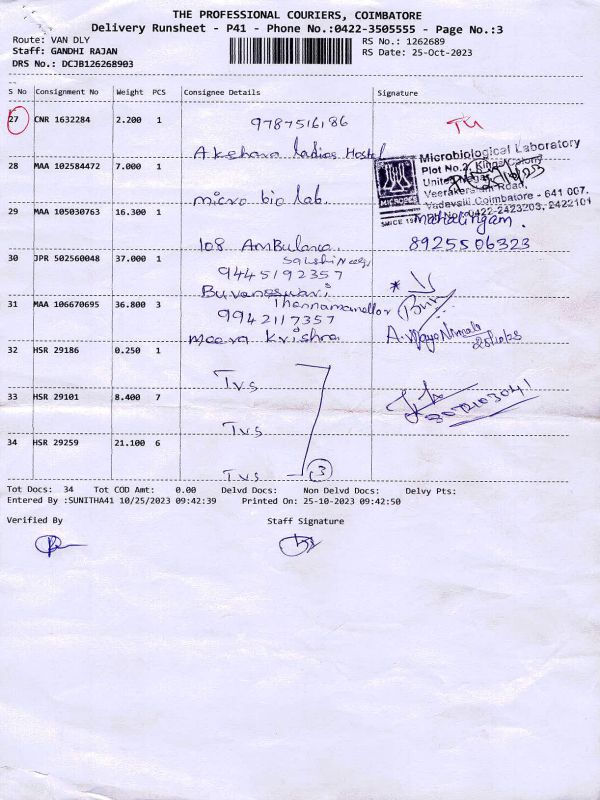 THE PROFESSIONAL COURIERS, COIMBATORE
Delivery Runsheet - P41 - Phone No.:0422-3505555 - Page No.:3
Route: VAN DLY
Staff: GANDHI RAJAN
DRS No.: DCJB126268903
RS No.: 1262689
RS Date: 25-Oct-2023
S No Consignment No Weight PCS Consignee Details Signature
27 CNR 1632284 2.200 1 9787516186 TU
Akshara Ladies Hostel
28 MAA 102584472 7.000 1
micro bio lab.
Microbiological Laboratory
Plot No.2, Kings Colony
United Nagar,
Veerakeralam Road,
Vadavalli, Coimbatore - 641 007.
0422-2423203, 2422101
MICROBE
SMICE
29 MAA 105030763 16.300 1 mahalingam.
108 Ambulance 8925506323
30 JPR 502560048 37.000 1
9445192357
Buvaneswari
31 MAA 106670695 36.800 3
9942117357
meera Krishna
32 HSR 29186 0.250 1
Tvs
33 HSR 29101 8.400 7
Tvs
34 HSR 29259 21.100 6
Tvs 3
Tot Docs: 34 Tot COD Amt: 0.00 Delvd Docs: Non Delvd Docs: Delvy Pts:
Entered By :SUNITHA41 10/25/2023 09:42:39 Printed On: 25-10-2023 09:42:50
Verified By Staff Signature